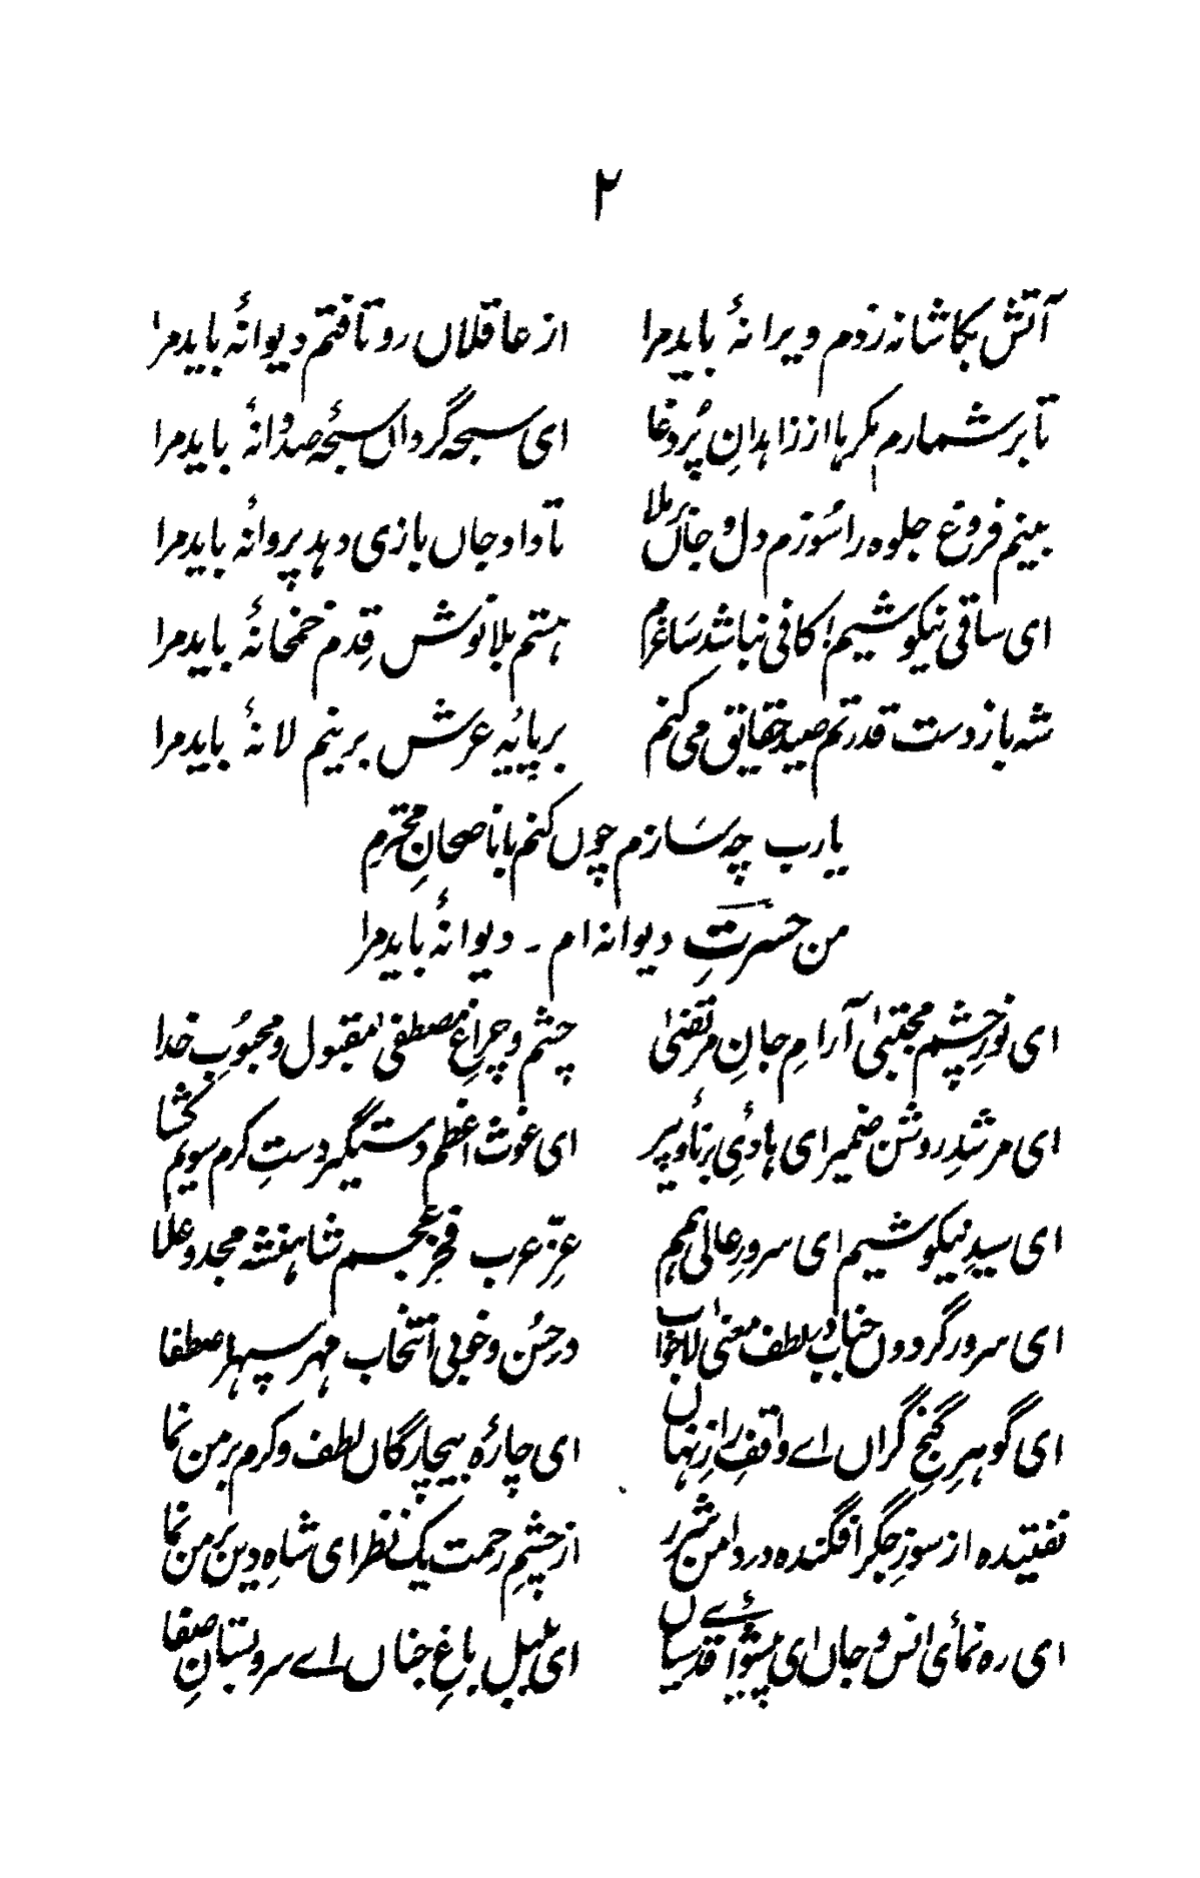 ۲
آتش بکاشانہ زدم ویرانۂ باید مرا از عاقلاں رو تافتم دیوانۂ باید مرا
تا بر شمارم مکرہا از زاہدانِ پُر دغا ای سبحہ گرداں سبحۂ صد دانۂ باید مرا
بینم فروغ جلوہ را سُوزم دل و جاں برملا تا داد جاں بازی دہد پروانۂ باید مرا
ای ساقی نیکو شیم! کافی نباشد سَاغرم ہستم بلا نوش قِدم خمخانۂ باید مرا
شہ باز دست قدرتم صید حقایق می کنم بر پایۂ عرش برینم لانۂ باید مرا
یارب چہ سَازم چوں کنم با ناصحانِ محترم
من حسرتِ دیوانہ ام ۔ دیوانۂ باید مرا
ای نورِ چشمِ مجتبیٰ آرامِ جانِ مرتضیٰ چشم و چراغِ مصطفیٰ مقبول و محبُوبِ خدا
ای مرشدِ روشن ضمیر ای ہادیٔ برنا و پیر ای غوث اعظم دستگیر دستِ کرم سویم کشا
ای سیدِ نیکو شیم ای سرورِ عالی ہمم عِزِّ عرب فخرِ عجم شاہنشہ مجد و علا
ای سرور گردوں جناب در لطف معنیٰ لاجواب در حُسن و خوبی انتخاب مہر سپہر اصطفا
ای گوہرِ گنجِ گراں اے واقفِ رازِ نہاں ای چارۂ بیچارگاں لطف و کرم بر من نما
تفتیدہ از سوزِ جگر افگندہ در دامن شرر از چشمِ رحمت یک نظر ای شاہِ دیں بر من نما
ای رہ نمائ انس و جاں ای پیشوائے قدسیاں ای بلبلِ باغِ جناں اے سرو بستانِ صفا